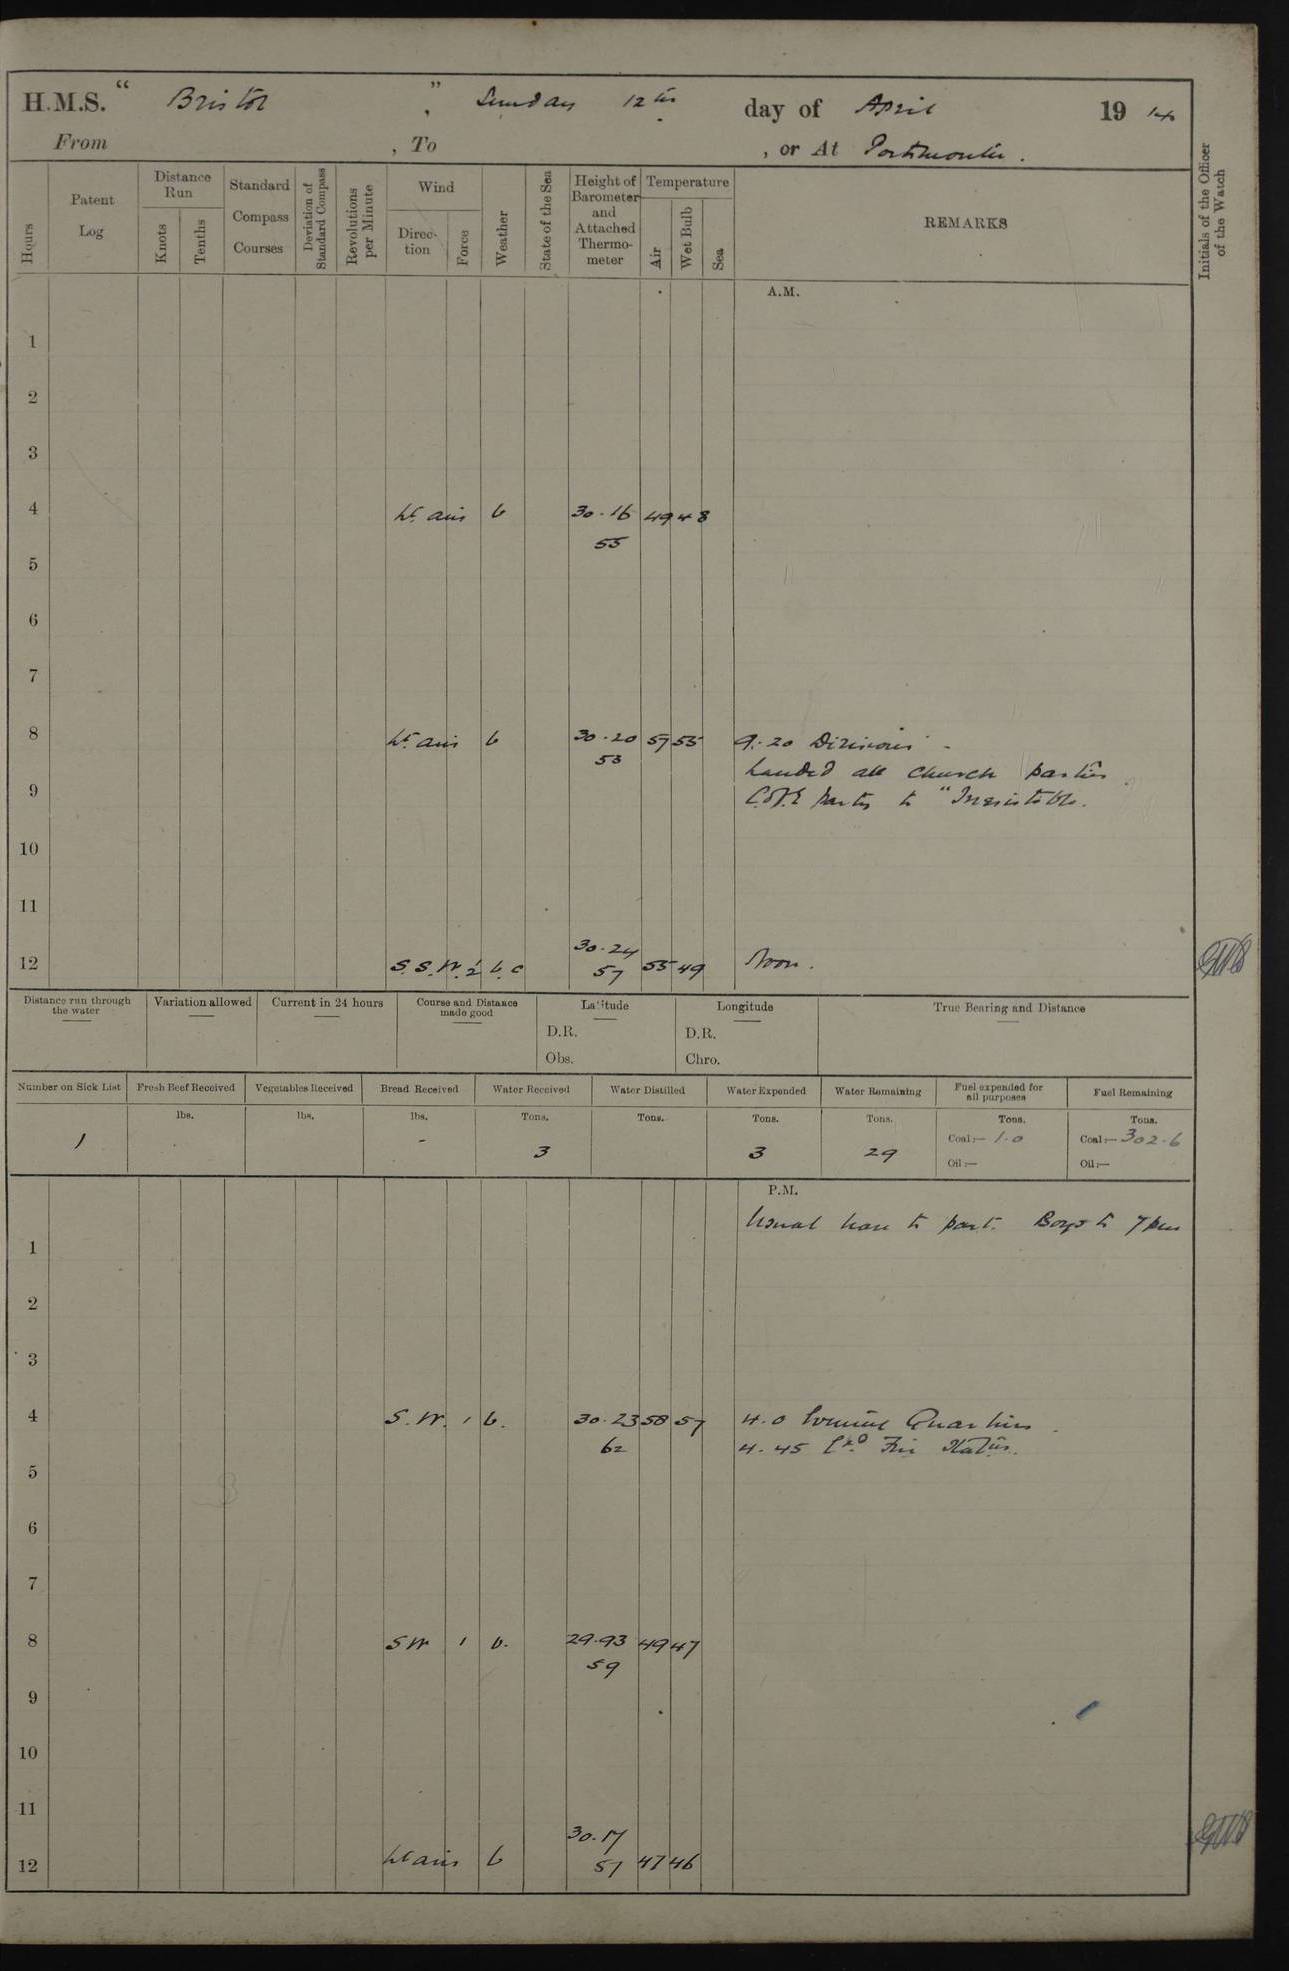 H.M.S. “ Bristol ” , Sunday 12th day of April 19 14
From , To , or At Portsmouth .
Hours
Patent Log
Distance Run
Knots
Tenths
Standard Compass Courses
Deviation of Standard Compass
Revolutions per Minute
Wind
Direc-tion
Force
Weather
State of the Sea
Height of Barometer and Attached Thermo-meter
Temperature
Air
Wet Bulb
Sea
REMARKS
Initials of the Officer of the Watch
A.M.
1
2
3
4 Lt. airs b 30.16 49 48
55
5
6
7
8 Lt. airs b 30.20 57 55 9.20 Divisions.
53 Landed all Church parties
9 C of E party to "Irresistible.
10
11
30.24
12 S.S.W. 1/2 b.c 57 55 49 Noon.
Distance run through the water
Variation allowed
Current in 24 hours
Course and Distance made good
Latitude
D.R.
Obs.
Longitude
D.R.
Chro.
True Bearing and Distance
Number on Sick List
Fresh Beef Received
Vegetables Received
Bread Received
Water Received
Water Distilled
Water Expended
Water Remaining
Fuel expended for all purposes
Fuel Remaining
lbs. lbs. lbs. Tons. Tons. Tons. Tons. Tons. Tons.
1 - 3 3 29 Coal:— 1.0 Coal:— 302.6
Oil:— Oil:—
P.M.
Usual leave to part. Boys to 7 pm
1
2
3
4 S.W. 1 b. 30.23 58 57 4.0 Evening Quarters
62 4.45 Exd Fire Stations.
5
6
7
8 SW 1 b. 29.93 49 47
59
9
10
11
30.17
12 Lt airs b 57 47 46